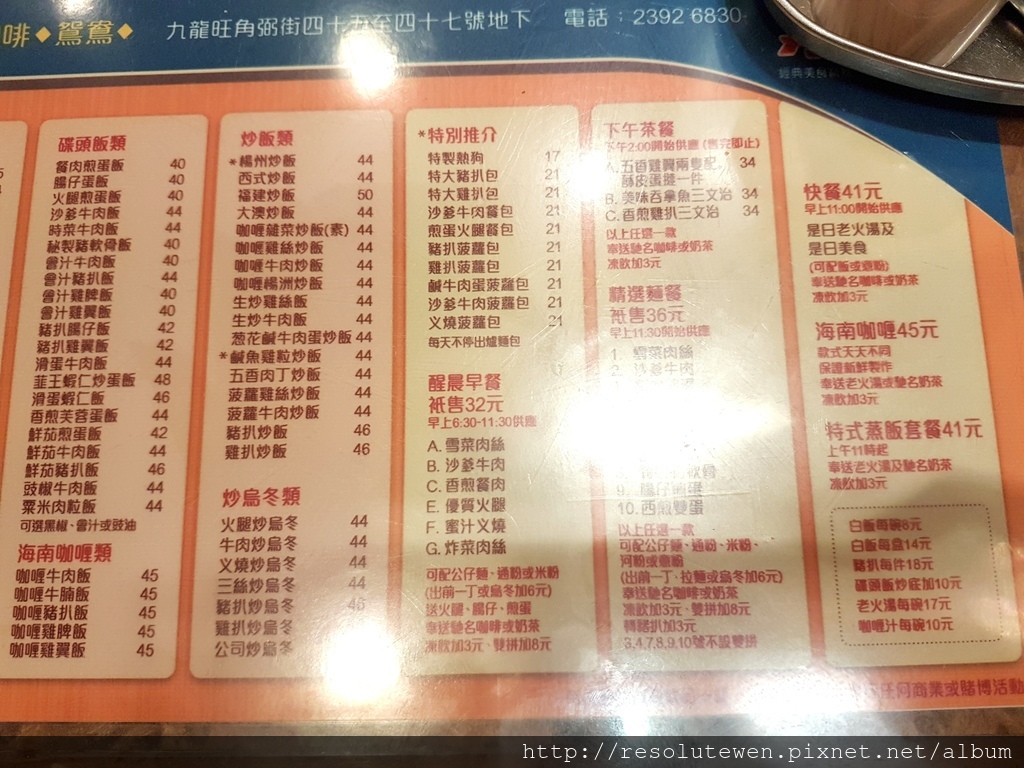 啡◆鴛鴦◆ 九龍旺角弼街四十五至四十七號地下 電話：2392 6830
碟頭飯類
餐肉煎蛋飯 40
腸仔蛋飯 40
火腿煎蛋飯 40
沙爹牛肉飯 44
時菜牛肉飯 44
秘製豬軟骨飯 40
會汁牛肉飯 40
會汁豬扒飯 44
會汁雞脾飯 40
會汁雞翼飯 40
豬扒腸仔飯 42
豬扒雞翼飯 42
滑蛋牛肉飯 44
韮王蝦仁炒蛋飯 48
滑蛋蝦仁飯 46
香煎芙蓉蛋飯 44
鮮茄煎蛋飯 42
鮮茄牛肉飯 44
鮮茄豬扒飯 46
豉椒牛肉飯 44
粟米肉粒飯 44
可選黑椒、會汁或豉油
海南咖喱類
咖喱牛肉飯 45
咖喱牛腩飯 45
咖喱豬扒飯 45
咖喱雞脾飯 45
咖喱雞翼飯 45
炒飯類
*楊州炒飯 44
西式炒飯 44
福建炒飯 50
大澳炒飯 44
咖喱雜菜炒飯(素) 44
咖喱雞絲炒飯 44
咖喱牛肉炒飯 44
咖喱楊洲炒飯 44
生炒雞絲飯 44
生炒牛肉飯 44
葱花鹹牛肉蛋炒飯 44
*鹹魚雞粒炒飯 44
五香肉丁炒飯 44
菠蘿雞絲炒飯 44
菠蘿牛肉炒飯 44
豬扒炒飯 46
雞扒炒飯 46
炒烏冬類
火腿炒烏冬 44
牛肉炒烏冬 44
叉燒炒烏冬 44
三絲炒烏冬 44
豬扒炒烏冬 46
雞扒炒烏冬
公司炒烏冬
*特別推介
特製熱狗 17
特大豬扒包 21
特大雞扒包 21
沙爹牛肉餐包 21
煎蛋火腿餐包 21
豬扒菠蘿包 21
雞扒菠蘿包 21
鹹牛肉蛋菠蘿包 21
沙爹牛肉菠蘿包 21
叉燒菠蘿包 21
每天不停出爐麵包
醒晨早餐
祇售32元
早上6:30-11:30供應
A. 雪菜肉絲
B. 沙爹牛肉
C. 香煎餐肉
E. 優質火腿
F. 蜜汁叉燒
G. 炸菜肉絲
可配公仔麵、通粉或米粉
(出前一丁或烏冬加6元)
送火腿、腸仔、煎蛋
奉送馳名咖啡或奶茶
凍飲加3元、雙拼加8元
下午茶餐
下午2:00開始供應 (售完即止)
A. 五香雞翼兩隻配 34
酥皮蛋撻一件
B. 美味吞拿魚三文治 34
C. 香煎雞扒三文治 34
以上任選一款
奉送馳名咖啡或奶茶
凍飲加3元
精選麵餐
祇售36元
早上11:30開始供應
1. 雪菜肉絲
2. 沙爹牛肉
10. 西煎雙蛋
以上任選一款
可配公仔麵、通粉、米粉、
河粉或意粉
(出前一丁、拉麵或烏冬加6元)
奉送馳名咖啡或奶茶
凍飲加3元、雙拼加8元
轉豬扒加3元
3,4,7,8,9,10號不設雙拼
快餐41元
早上11:00開始供應
是日老火湯及
是日美食
(可配飯或意粉)
奉送馳名咖啡或奶茶
凍飲加3元
海南咖喱45元
款式天天不同
保證新鮮製作
奉送老火湯或馳名奶茶
凍飲加3元
特式蒸飯套餐41元
上午11時起
奉送老火湯及馳名奶茶
凍飲加3元
白飯每碗8元
白飯每盒14元
豬扒每件18元
碟頭飯炒底加10元
老火湯每碗17元
咖喱汁每碗10元
任何商業或賭博活動
http://resolutewen.pixnet.net/album